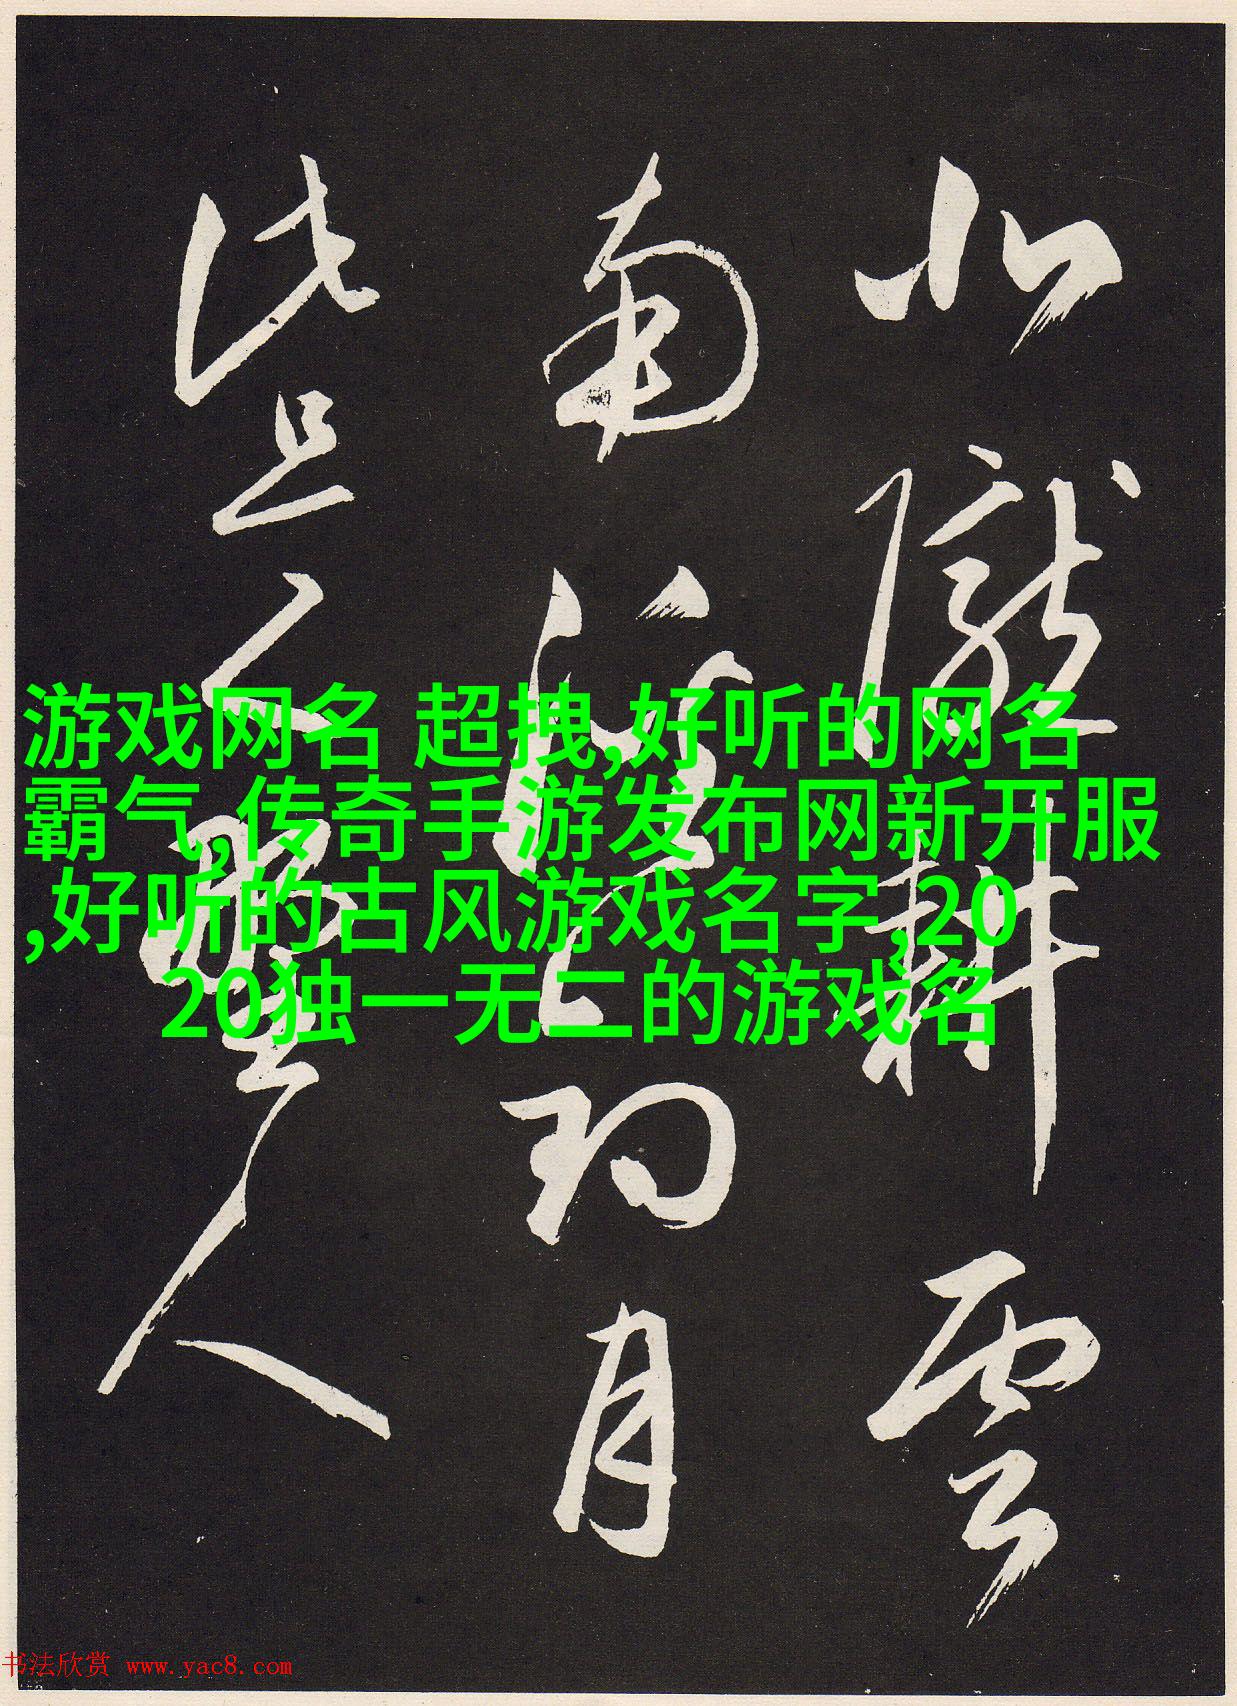 北隴耕雲
南溪釣月
此是野人
游戏网名 超拽,好听的网名
霸气,传奇手游发布网新开服
,好听的古风游戏名字,20
20独一无二的游戏名
书法欣赏 www.yac8.com